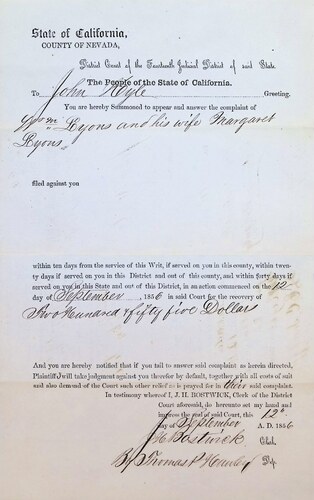 State of California,
COUNTY OF NEVADA,
District Court of the Fourteenth Judicial District of said State.
The People of the State of California.
To John Kyle Greeting.
You are hereby Summoned to appear and answer the complaint of
Wm Lyons and his wife Margaret
Lyons
filed against you
within ten days from the service of this Writ, if served on you in this county, within twen-
ty days if served on you in this District and out of this county, and within forty days if
served on you in this State and out of this District, in an action commenced on the 12
day of September 1856 in said Court for the recovery of
Two Hundred & fifty five Dollars
And you are hereby notified that if you fail to answer said complaint as herein directed,
Plaintiff will take judgment against you therefor by default, together with all costs of suit
and also demand of the Court such other relief as is prayed for in their said complaint.
In testimony whereof I, J. H. BOSTWICK, Clerk of the District
Court aforesaid, do hereunto set my hand and
impress the seal of said Court, this 12"
day of September A. D. 1856
J H Bostwick Clerk
By Thomas P Hawley Dy